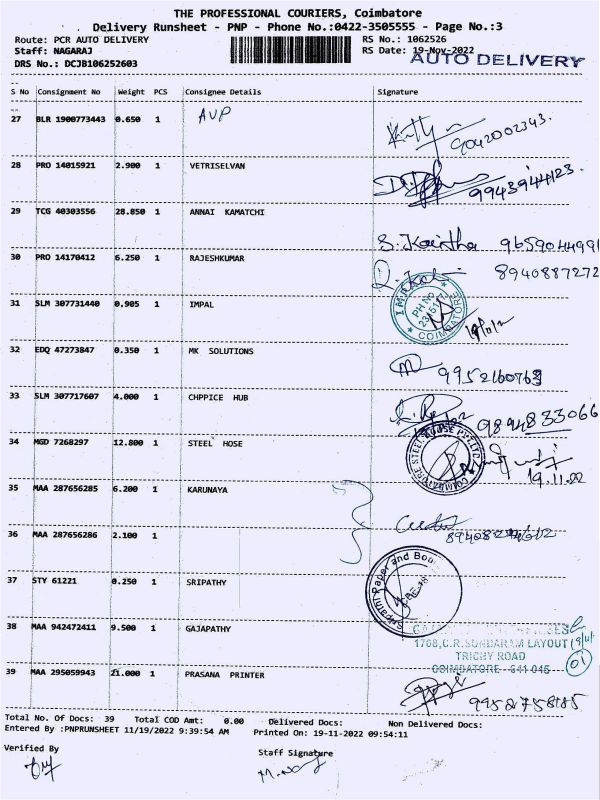 THE PROFESSIONAL COURIERS, Coimbatore
Delivery Runsheet - PNP - Phone No.:0422-3505555 - Page No.:3
Route: PCR AUTO DELIVERY RS No.: 1062526
Staff: NAGARAJ RS Date: 19-Nov-2022
DRS No.: DCJB106252603 AUTO DELIVERY
S No Consignment No Weight PCS Consignee Details Signature
27 BLR 1900773443 0.650 1 AVP
9042002343.
28 PRO 14015921 2.900 1 VETRISELVAN
9943944123.
29 TCG 40303556 28.850 1 ANNAI KAMATCHI
S. Kavitha 9659044991
30 PRO 14170412 6.250 1 RAJESHKUMAR
8940887272
31 SLM 307731440 0.905 1 IMPAL
IMPAL PH No COIMBATORE
32 EDQ 47273847 0.350 1 MK SOLUTIONS
9952160763
33 SLM 307717607 4.000 1 CHPPICE HUB
9894833066
34 MGD 7268297 12.800 1 STEEL HOSE
COIMBATORE STEEL HOUSE PVT.LTD.
19.11.22
35 MAA 287656285 6.200 1 KARUNAYA
36 MAA 287656286 2.100 1
37 STY 61221 0.250 1 SRIPATHY
Sripathi Paper and Boards
38 MAA 942472411 9.500 1 GAJAPATHY
1708,C.R.SUNDARAM LAYOUT
TRICHY ROAD
COIMBATORE - 641 045 01
39 MAA 295059943 21.000 1 PRASANA PRINTER
9952758185
Total No. Of Docs: 39 Total COD Amt: 0.00 Delivered Docs: Non Delivered Docs:
Entered By :PNPRUNSHEET 11/19/2022 9:39:54 AM Printed On: 19-11-2022 09:54:11
Verified By Staff Signature